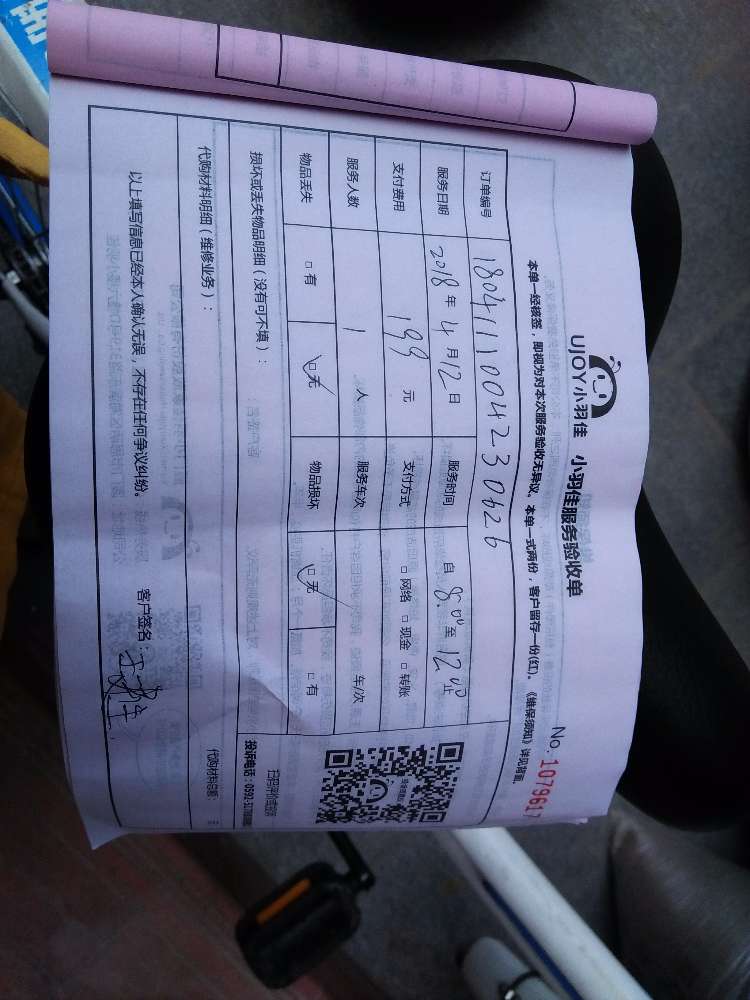 UJOY小羽佳 小羽佳服务验收单
No. 1079617
本单一经核签，即视为对本次服务验收无异议。本单一式两份，客户留存一份(红)。《维保须知》详见背面。
订单编号 1804111004230626
服务日期 2018年4月12日 服务时间 自8:00至12:00止
支付费用 199元 支付方式 □网络 □现金 □转账
服务人数 1人 服务车次 车/次
物品丢失 □有 □无 物品损坏 □无 □有
损坏或丢失物品明细（没有可不填）：
扫码评价或投诉
投诉电话：0592-
代购材料明细（维修业务）： 代购材料总额： 元
以上填写信息已经本人确认无误，不存在任何争议纠纷。 客户签名：